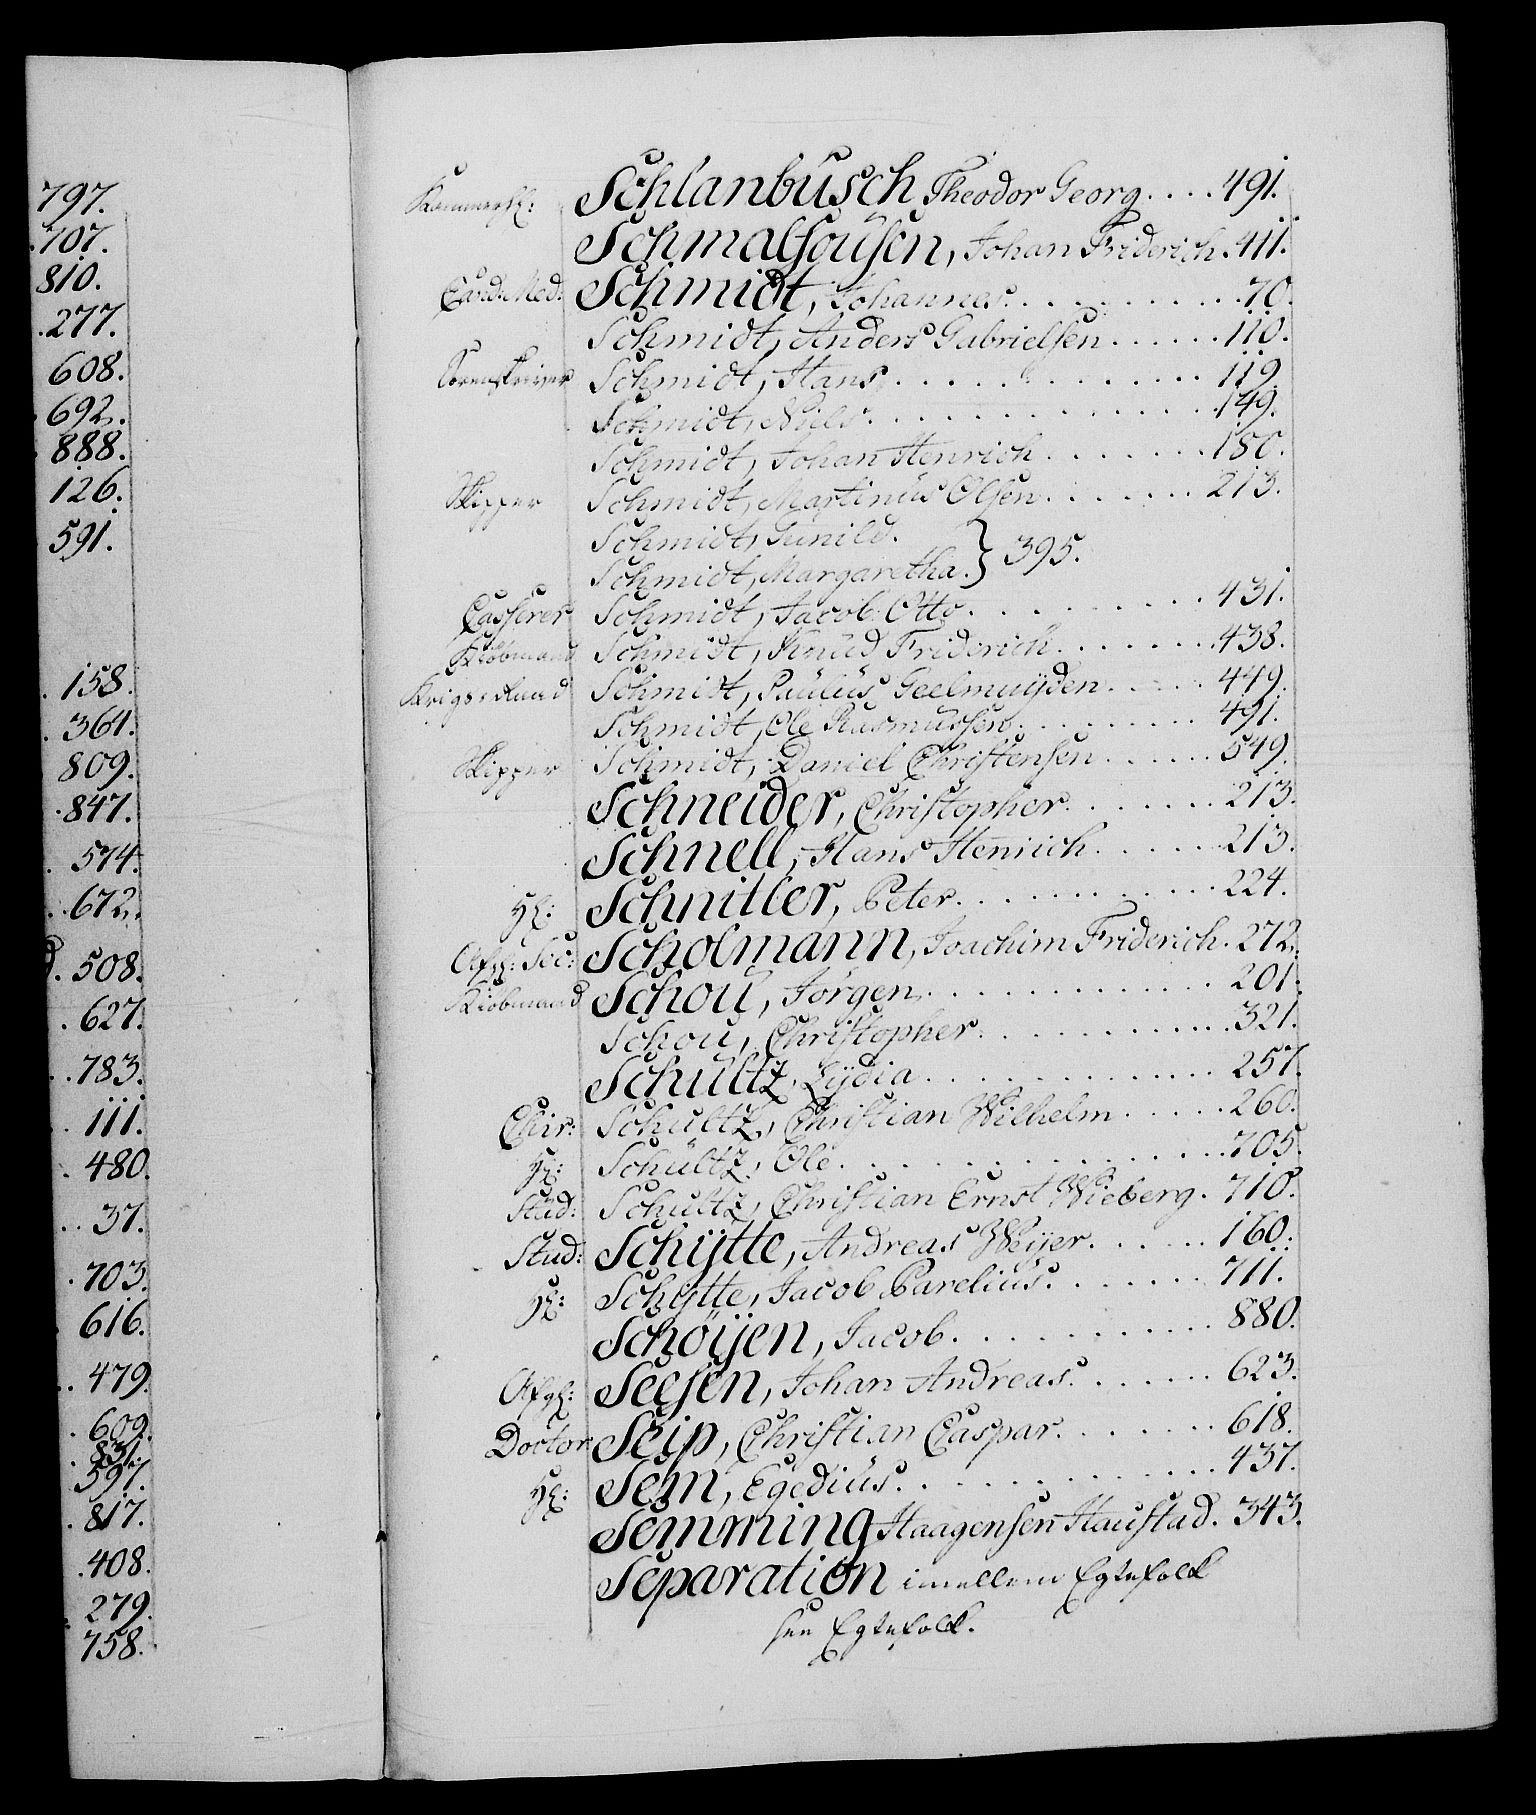 797.
707.
810.
277.
608.
692.
888.
126.
591.
158.
361.
809.
847.
574.
672.
508.
627.
783.
111.
480.
37.
703.
616.
479.
609.
831.
597.
817.
408.
279.
758.
Kammerh: Schlanbusch Theodor Georg . . . . 491.
Schmalhousen, Johan Friderich . 411.
Cand: Med: Schmidt, Johannes . . . . . . . . . . 70.
Schmidt, Anders Gabrielsen . . . . . . 110.
Sorenskriver Schmidt, Hans . . . . . . . . . . . . . 119.
Schmidt, Niels . . . . . . . . . . . . . 149.
Schmidt, Johan Henrich . . . . . . . . 180.
Skipper Schmidt, Martinus Olsen . . . . . . . 213.
Schmidt, Gunild.
Schmidt, Margaretha. } 395.
Casserer Schmidt, Jacob Otto . . . . . . . . . 431.
Kiöbmand Schmidt, Knud Friderich . . . . . . . 438.
Krigs-Raad Schmidt, Paulus Geelmuyden . . . . . 449.
Schmidt, Ole Rasmussen . . . . . . . . 491.
Skipper Schmidt, Daniel Christensen . . . . . . 549.
Schneider, Christopher . . . . . . . . 213.
Schnell, Hans Henrich . . . . . . . 213.
Hr: Schnitler, Peter . . . . . . . . . . . 224.
Assess: Scholmann, Joachim Friderich . 272.
Kiöbmand Schou, Jörgen . . . . . . . . . . . . . 201.
Schou, Christopher . . . . . . . . . . . 321.
Schultz, Lydia . . . . . . . . . . . . . 257.
Chir: Schultz, Christian Wilhelm . . . . . 260.
Hr: Schultz, Ole . . . . . . . . . . . . . . . . 705.
Stud: Schultz, Christian Ernst Wieberg . 710.
Stud: Schÿtte, Andreas Weyer . . . . . . 160.
Hr: Schÿtte, Jacob Parelius . . . . . . . 711.
Schöÿen, Jacob . . . . . . . . . . . . 880.
Afgl: Seesen, Johan Andreas . . . . . . 623.
Doctor Seip, Christian Caspar . . . . . . . . 618.
Hr: Sem, Egedius . . . . . . . . . . . . . . 437.
Semming Haagensen Haustad . 343.
Separation imellem Egtefolk
see Egtefolk.